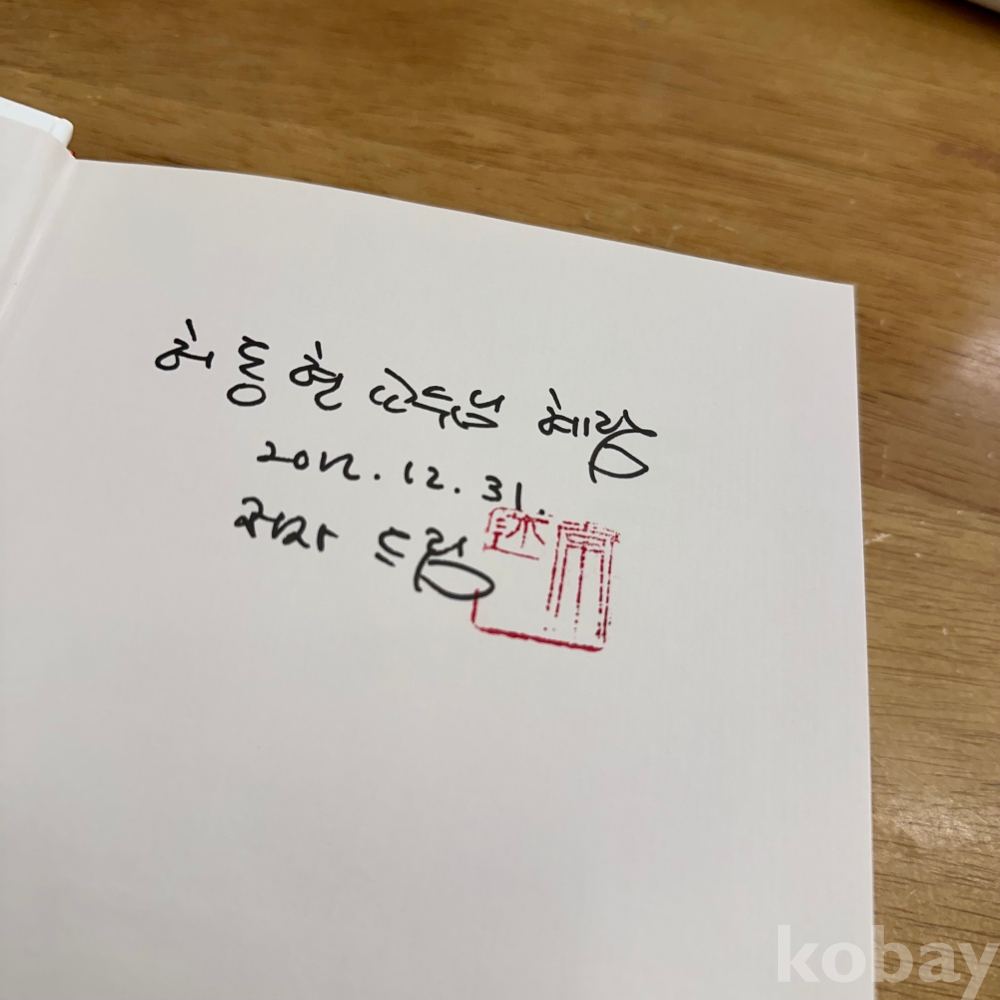 허동현 교수님 혜람
2012. 12. 31.
저자 드림
kobay